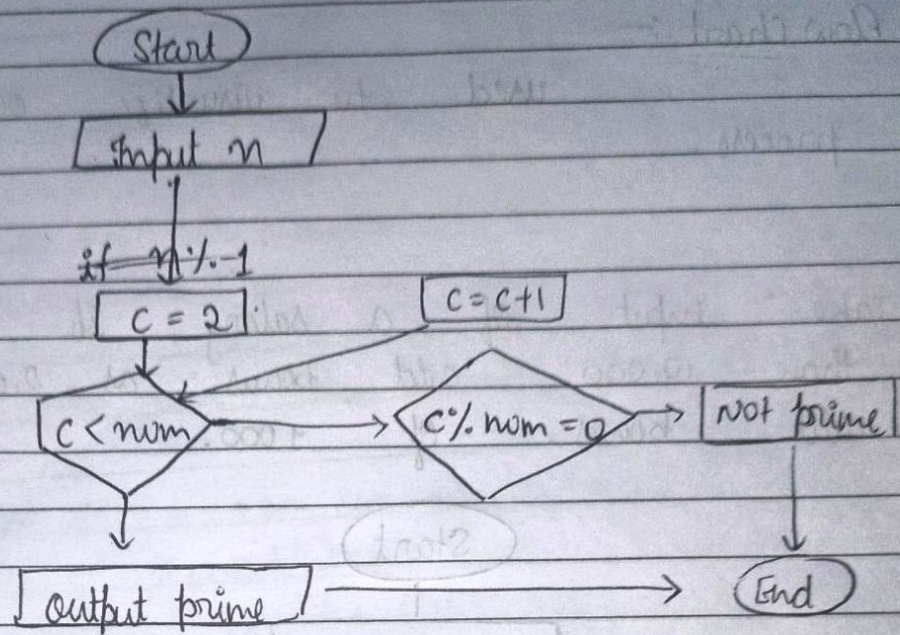 Start
Input n
if n % - 1
C = 2
C = C+1
C < num
C % num = 0
Not prime
output prime
End